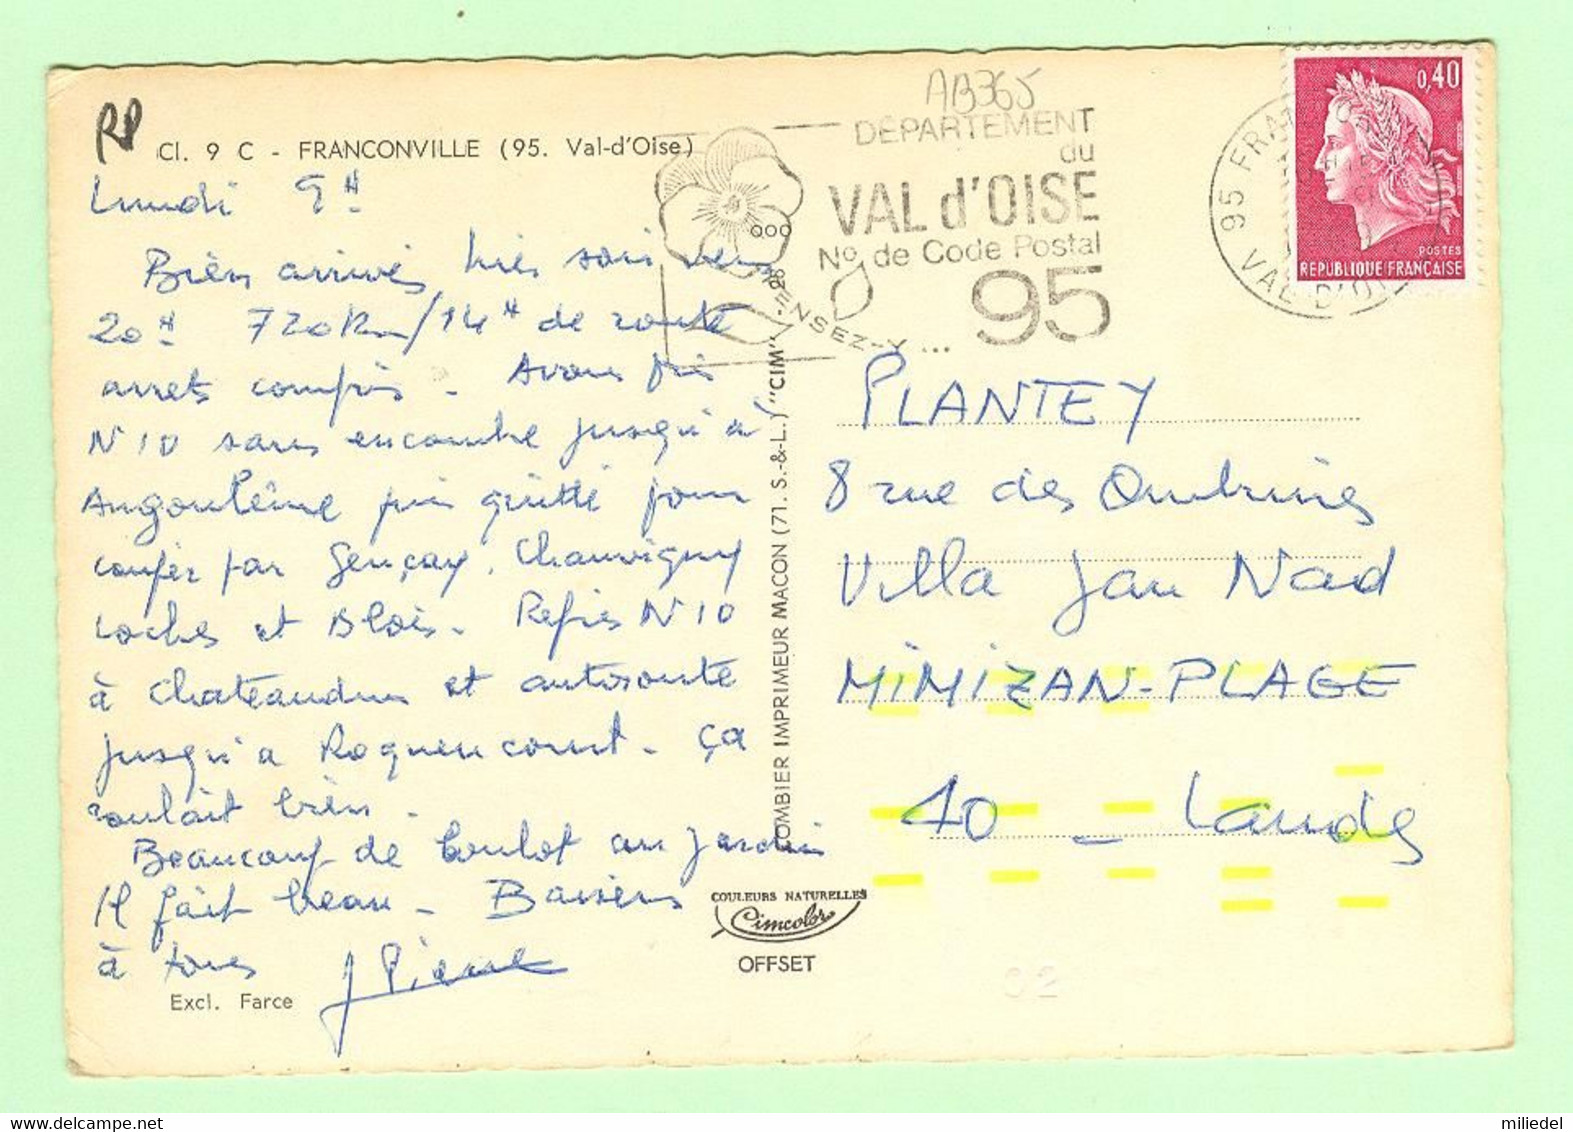 RP
Cl. 9 C - FRANCONVILLE (95. Val-d'Oise)
Lundi 9H
Bien arrivés hier soir vers
20H 720 Km/14H de route
arrets compris - Avons pris
N10 sans encombre jusqu'à
Angoulême puis quitté pour
couper par Gençay, Chauvigny
Loches et Blois - Repris N10
à Chateaudun et autoroute
jusqu'à Roquencourt. ça
roulait bien.
Beaucoup de boulot au jardin
Il fait beau - Baisers
à tous J Pierre
Excl. Farce
COMBIER IMPRIMEUR MACON (71. S.-&-L.) "CIM"
COULEURS NATURELLES
Cimcolor
OFFSET
AB365
DEPARTEMENT
du
VAL d'OISE
No de Code Postal
95
PENSEZ-Y...
95
VAL D'OISE
0,40
POSTES
REPUBLIQUE FRANÇAISE
PLANTEY
8 rue des Ombrines
Villa Jan Nad
MIMIZAN-PLAGE
40 - Landes
02
miliedel
delcampe.net